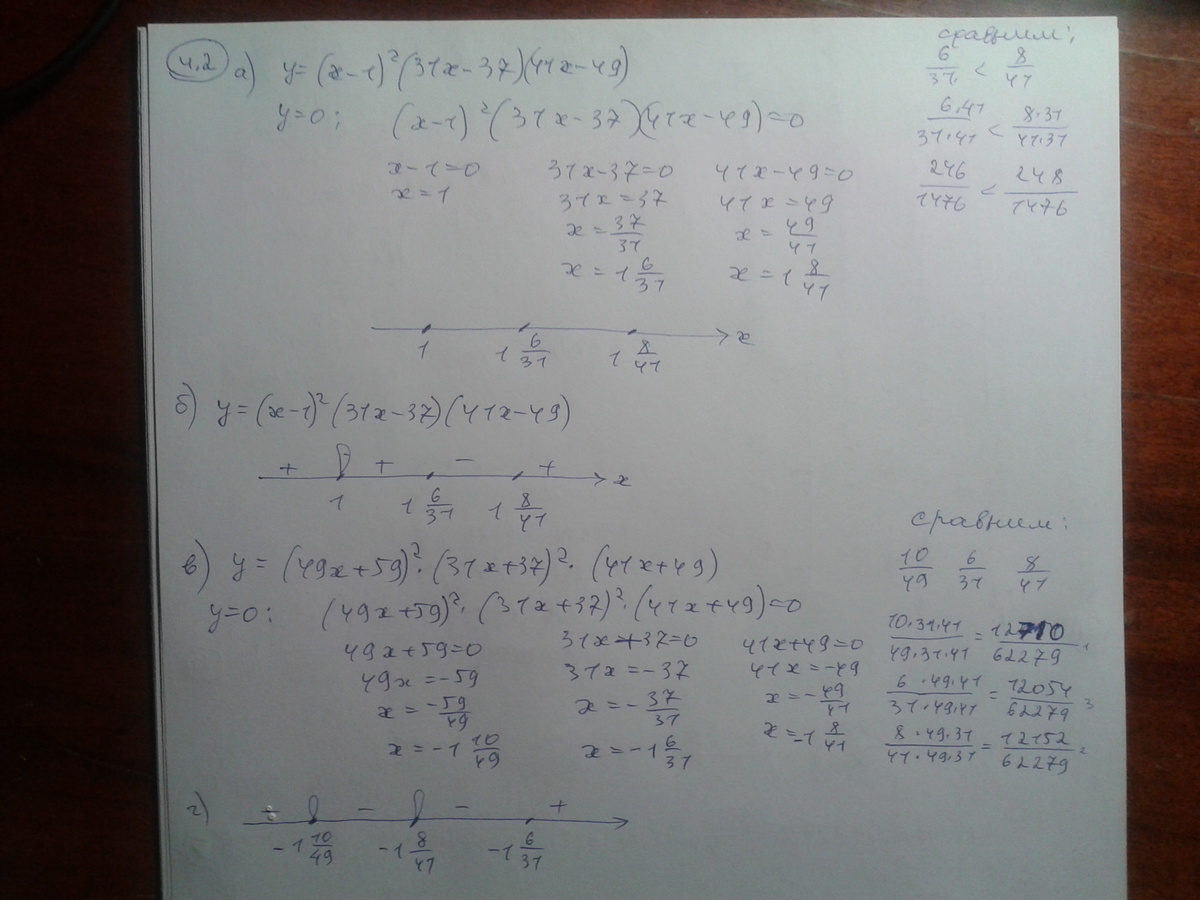 4.2 а) y=(x-1)²(31x-37)(41x-49)
y=0; (x-1)²(31x-37)(41x-49)=0
x-1=0 31x-37=0 41x-49=0
x=1 31x=37 41x=49
x=37/31 x=49/41
x=1 6/31 x=1 8/41
сравним:
6/31 < 8/41
6·41/31·41 < 8·31/41·31
246/1476 < 248/1476
1 1 6/31 1 8/41 x
б) y=(x-1)²(31x-37)(41x-49)
+ + - +
1 1 6/31 1 8/41 x
в) y=(49x+59)²·(31x+37)²·(41x+49)
y=0: (49x+59)²·(31x+37)²·(41x+49)=0
49x+59=0 31x+37=0 41x+49=0
49x=-59 31x=-37 41x=-49
x=-59/49 x=-37/31 x=-49/41
x=-1 10/49 x=-1 6/31 x=-1 8/41
сравним:
10/49 6/31 8/41
10·31·41/49·31·41=12710/62279 1
6·49·41/31·49·41=12054/62279 3
8·49·31/41·49·31=12152/62279 2
г) - - +
-1 10/49 -1 8/41 -1 6/31